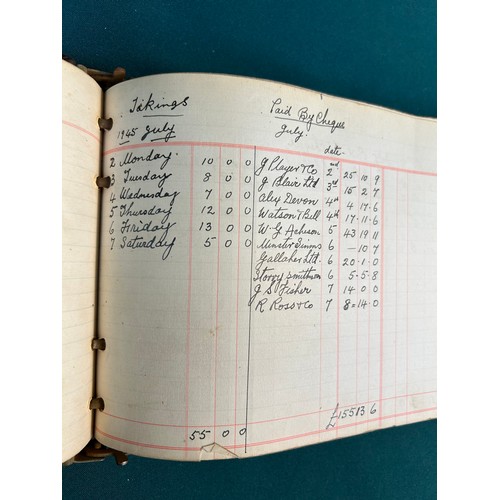 Takings
1945 July
2 Monday. 10 0 0
3 Tuesday 8 0 0
4 Wednesday 7 0 0
5 Thursday 12 0 0
6 Friday 13 0 0
7 Saturday 5 0 0
55 0 0
Paid By Cheque
July.
date.
J Player & Co 2nd 25 10 9
J. Blair Ltd 3rd 15 2 7
Alex Devon 4th 4 17 6
Watson & Bell 4th 17 11 6
W. G Acheson 5 43 19 11
6 - 10 7
Gallaher Ltd. 6 20 1 0
Storey Smithson 6 5 5 8
J. S Fisher 7 14 0 0
R Ross & Co 7 8 = 14 0
£155 13 6